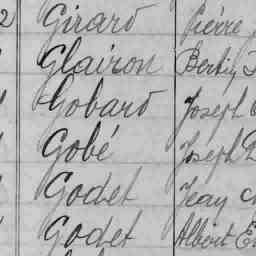 2 Girard Pierre
Glairon
Gobard Joseph
Gobé Joseph
Godet Jean
Godet Albert